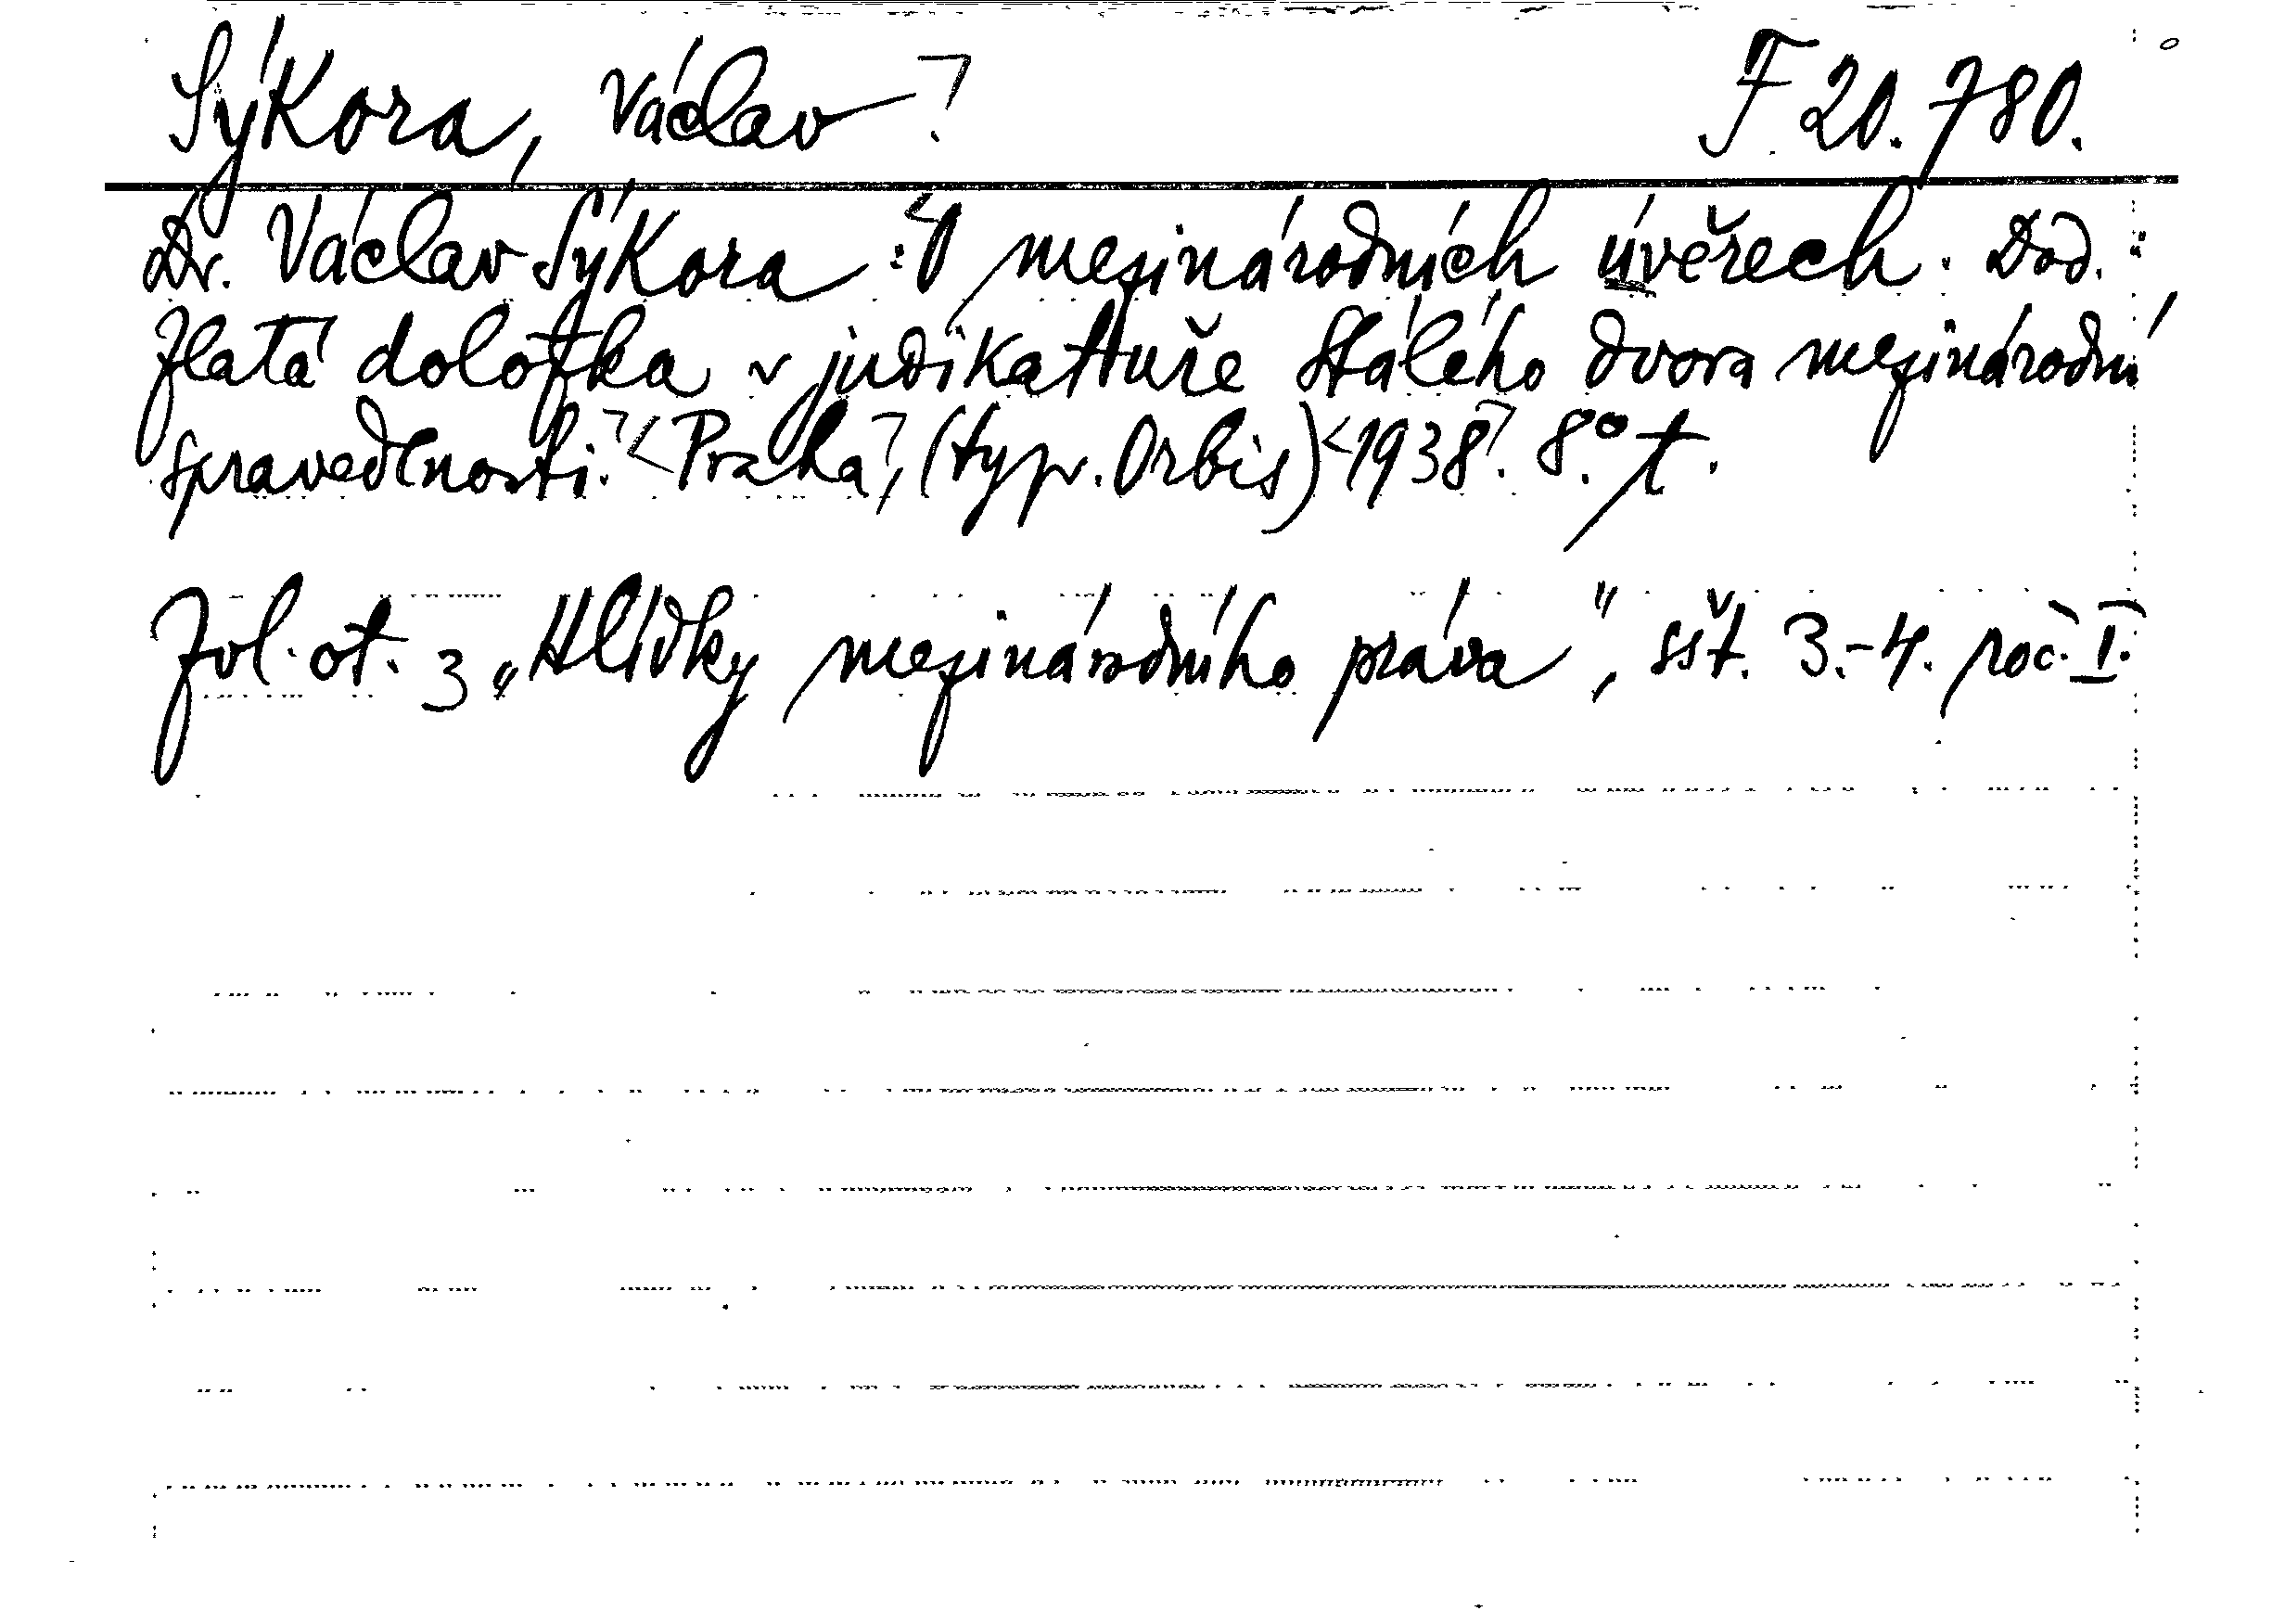 Sýkora, Václav ⁊. F 20.780.
Dr. Václav Sýkora: <O mezinárodních úvěrech. Dod.:
Zlatá doložka v judikatuře Stálého dvora mezinárodní
spravedlnosti.⁊ <Praha⁊, (typ. Orbis) <1938⁊. 8.° t.
Zvl. ot. z „Hlídky mezinárodního práva“, sšt. 3.-4. roč. I.